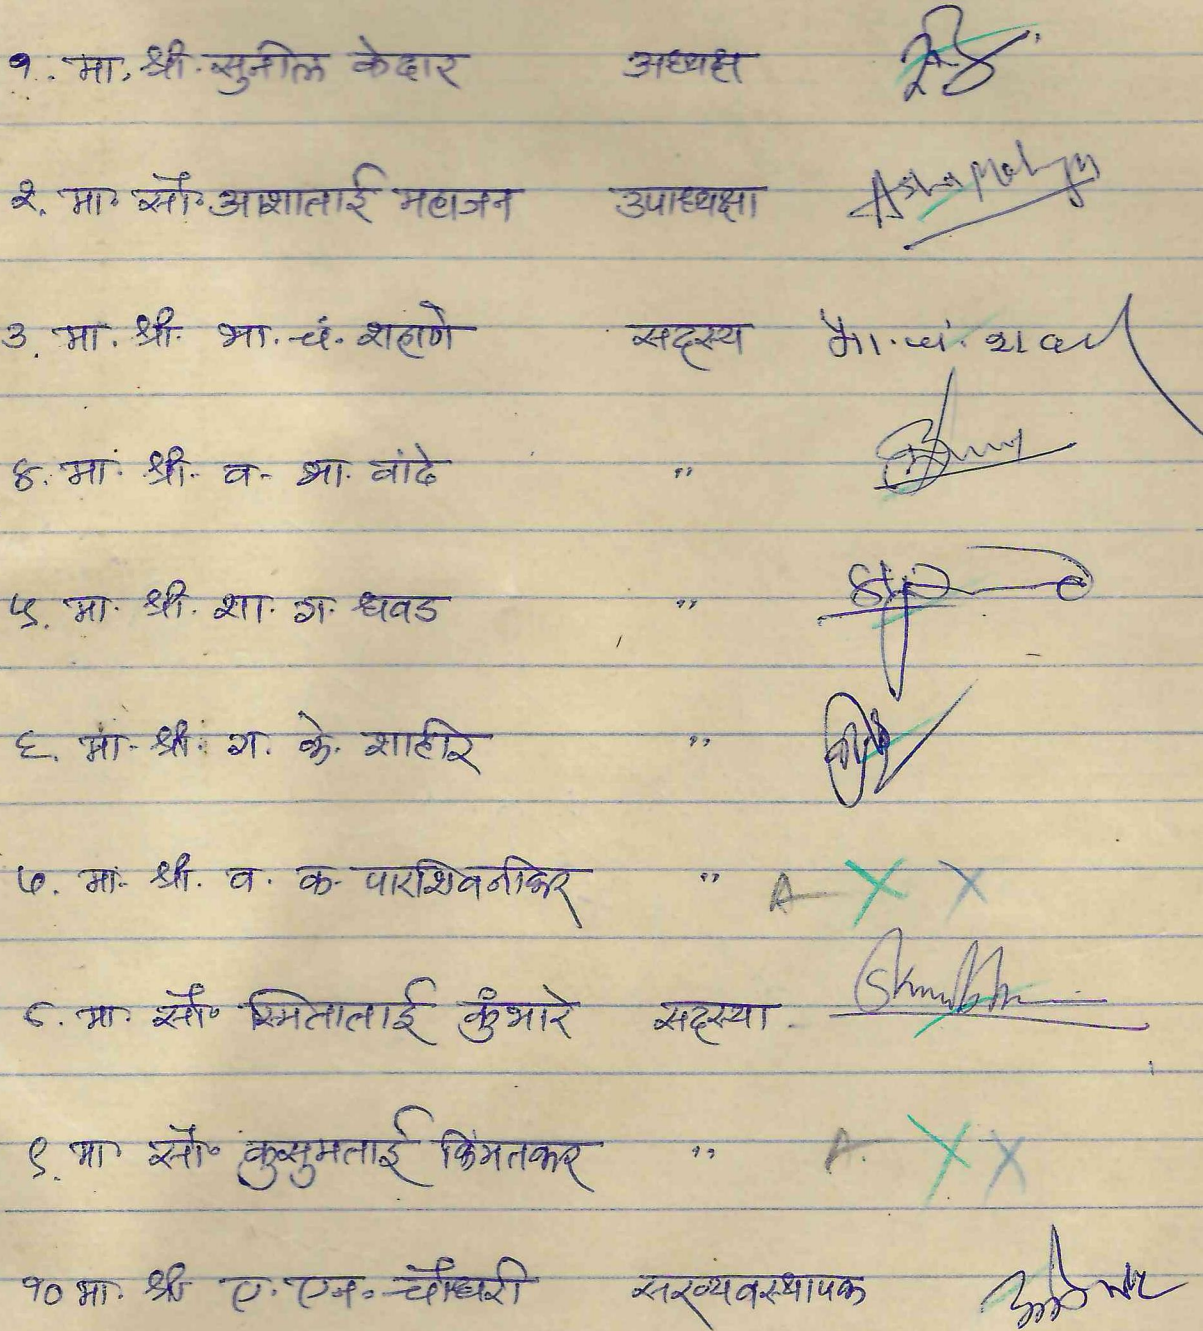 १. मा. श्री. सुनील केदार अध्यक्ष
२. मा. सौ. आशाताई महाजन उपाध्यक्षा Asha Mahajan
३. मा. श्री. भा. चं. शहाणे सदस्य भा. चं. शहाणे
४. मा. श्री. व. भा. वांदे ,,
५. मा. श्री. शा. ग. धवड ,,
६. मा. श्री. ग. के. शाहीरे ,,
७. मा. श्री. व. क. पारशिवनीकर ,, A X X
८. मा. सौ. स्मिताताई कुंभारे सदस्या
९. मा. सौ. कुसुमताई किंमतकर ,, A. X X
१० मा. श्री ए. एन. चौधरी सरव्यवस्थापक